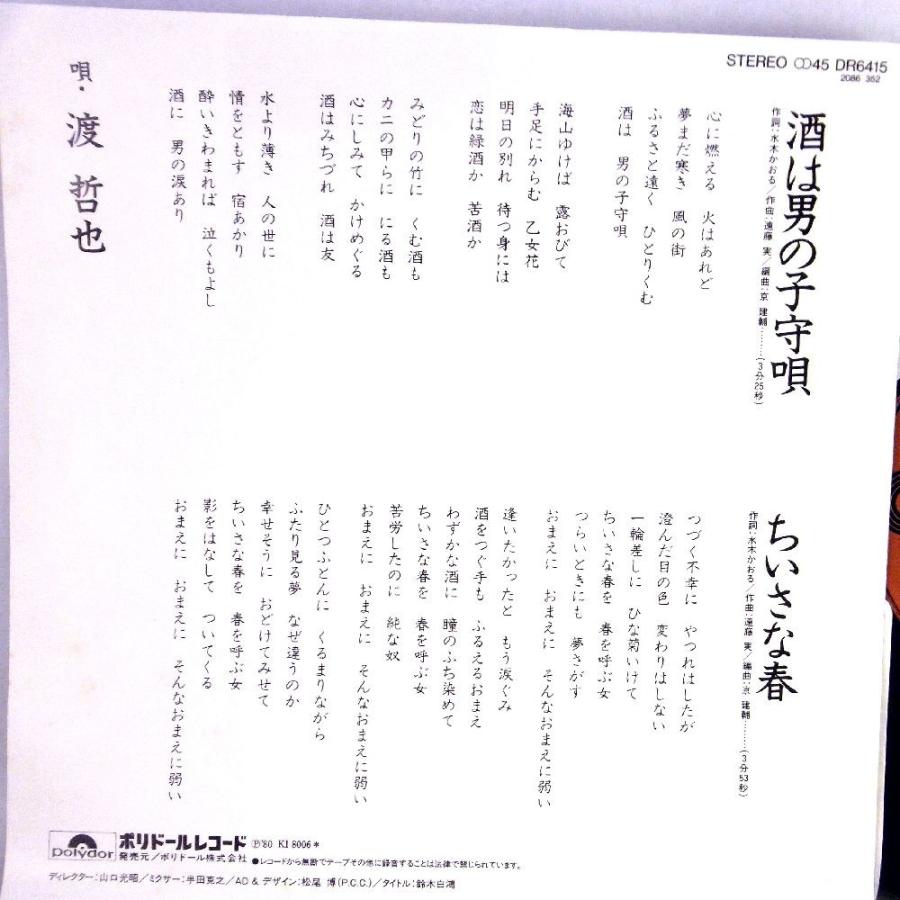 STEREO ∞45 DR6415
2086 352
酒は男の子守唄
作詞:水木かおる/作曲:遠藤 実/編曲:京 建輔………(3分25秒)
心に燃える 火はあれど
夢まだ寒き 風の街
ふるさと遠く ひとりくむ
酒は 男の子守唄
海山ゆけば 露おびて
手足にからむ 乙女花
明日の別れ 待つ身には
恋は緑酒か 苦酒か
みどりの竹に くむ酒も
カニの甲らに にる酒も
心にしみて かけめぐる
酒はみちづれ 酒は友
水より薄き 人の世に
情をともす 宿あかり
酔いきわまれば 泣くもよし
酒に 男の涙あり
唄・渡 哲也
ちいさな春
作詞:水木かおる/作曲:遠藤 実/編曲:京 建輔………(3分53秒)
つづく不幸に やつれはしたが
澄んだ日の色 変わりはしない
一輪差しに ひな菊いけて
ちいさな春を 春を呼ぶ女
つらいときにも 夢さがす
おまえに おまえに そんなおまえに弱い
逢いたかったと もう涙ぐみ
酒をつぐ手も ふるえるおまえ
わずかな酒に 瞳のふち染めて
ちいさな春を 春を呼ぶ女
苦労したのに 純な奴
おまえに おまえに そんなおまえに弱い
ひとつふとんに くるまりながら
ふたり見る夢 なぜ違うのか
幸せそうに おどけてみせて
ちいさな春を 春を呼ぶ女
影をはなして ついてくる
おまえに おまえに そんなおまえに弱い
polydor
ポリドールレコード Ⓟ'80 KI 8006*
発売元/ポリドール株式会社 ●レコードから無断でテープその他に録音することは法律で禁じられています。
ディレクター:山口光昭/ミクサー:半田克之/AD & デザイン:松尾 博(P.C.C.)/タイトル:鈴木白鴻